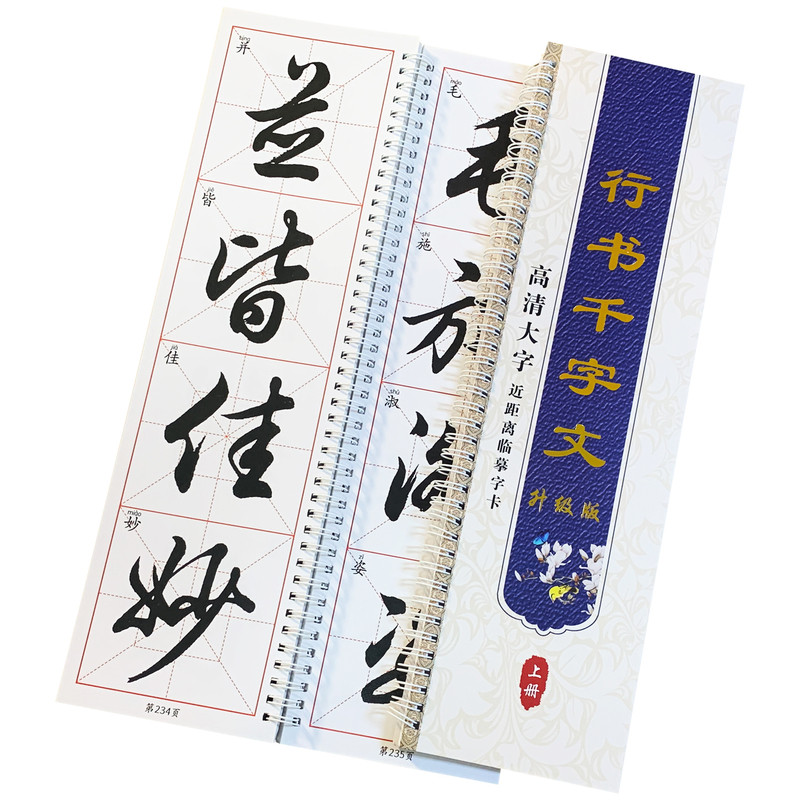 bìng
并
並
jiē
皆
皆
jiā
佳
佳
miào
妙
妙
第234页
máo
毛
毛
shī
施
施
shū
淑
淑
zī
姿
姿
第235页
行书千字文
升级版
高清大字
近距离临摹字卡
上册